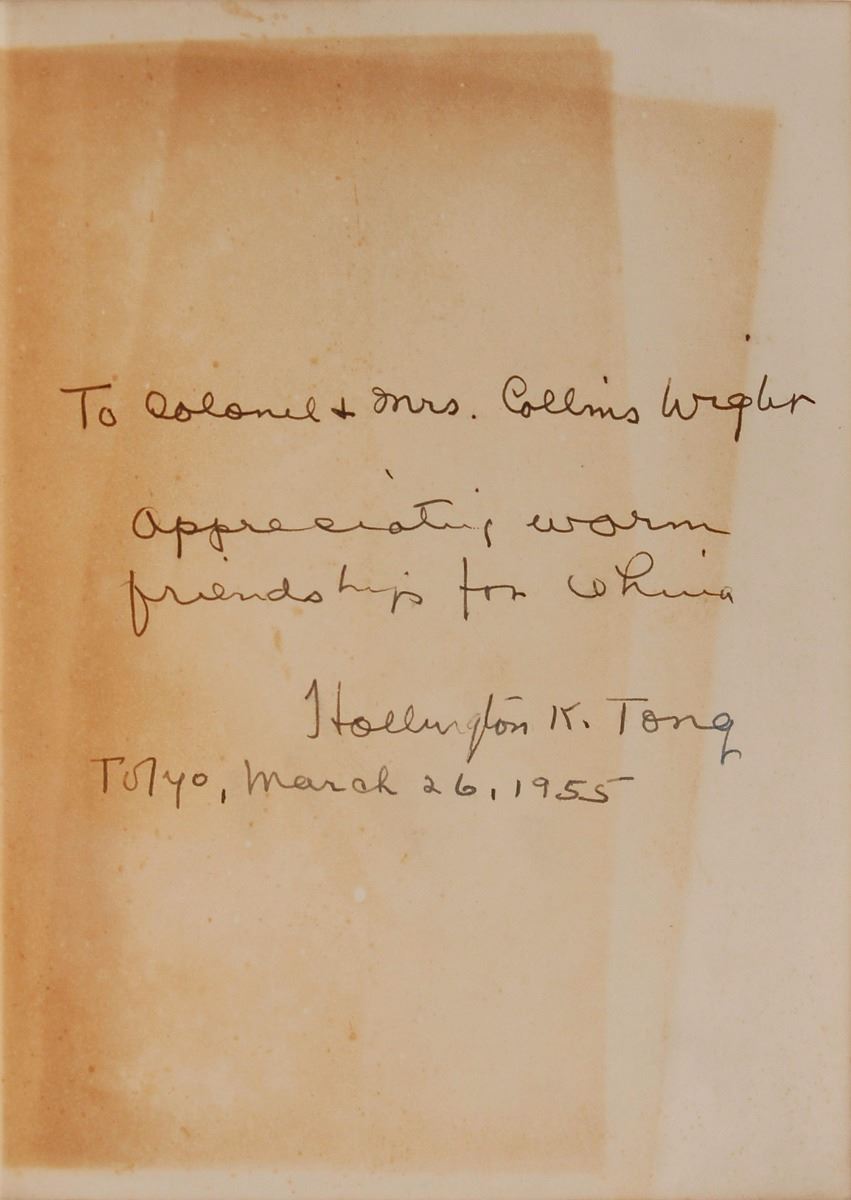 To Colonel & Mrs. Collins Wight
Appreciating warm
friendship for China
Hollington K. Tong
Tokyo, March 26, 1955